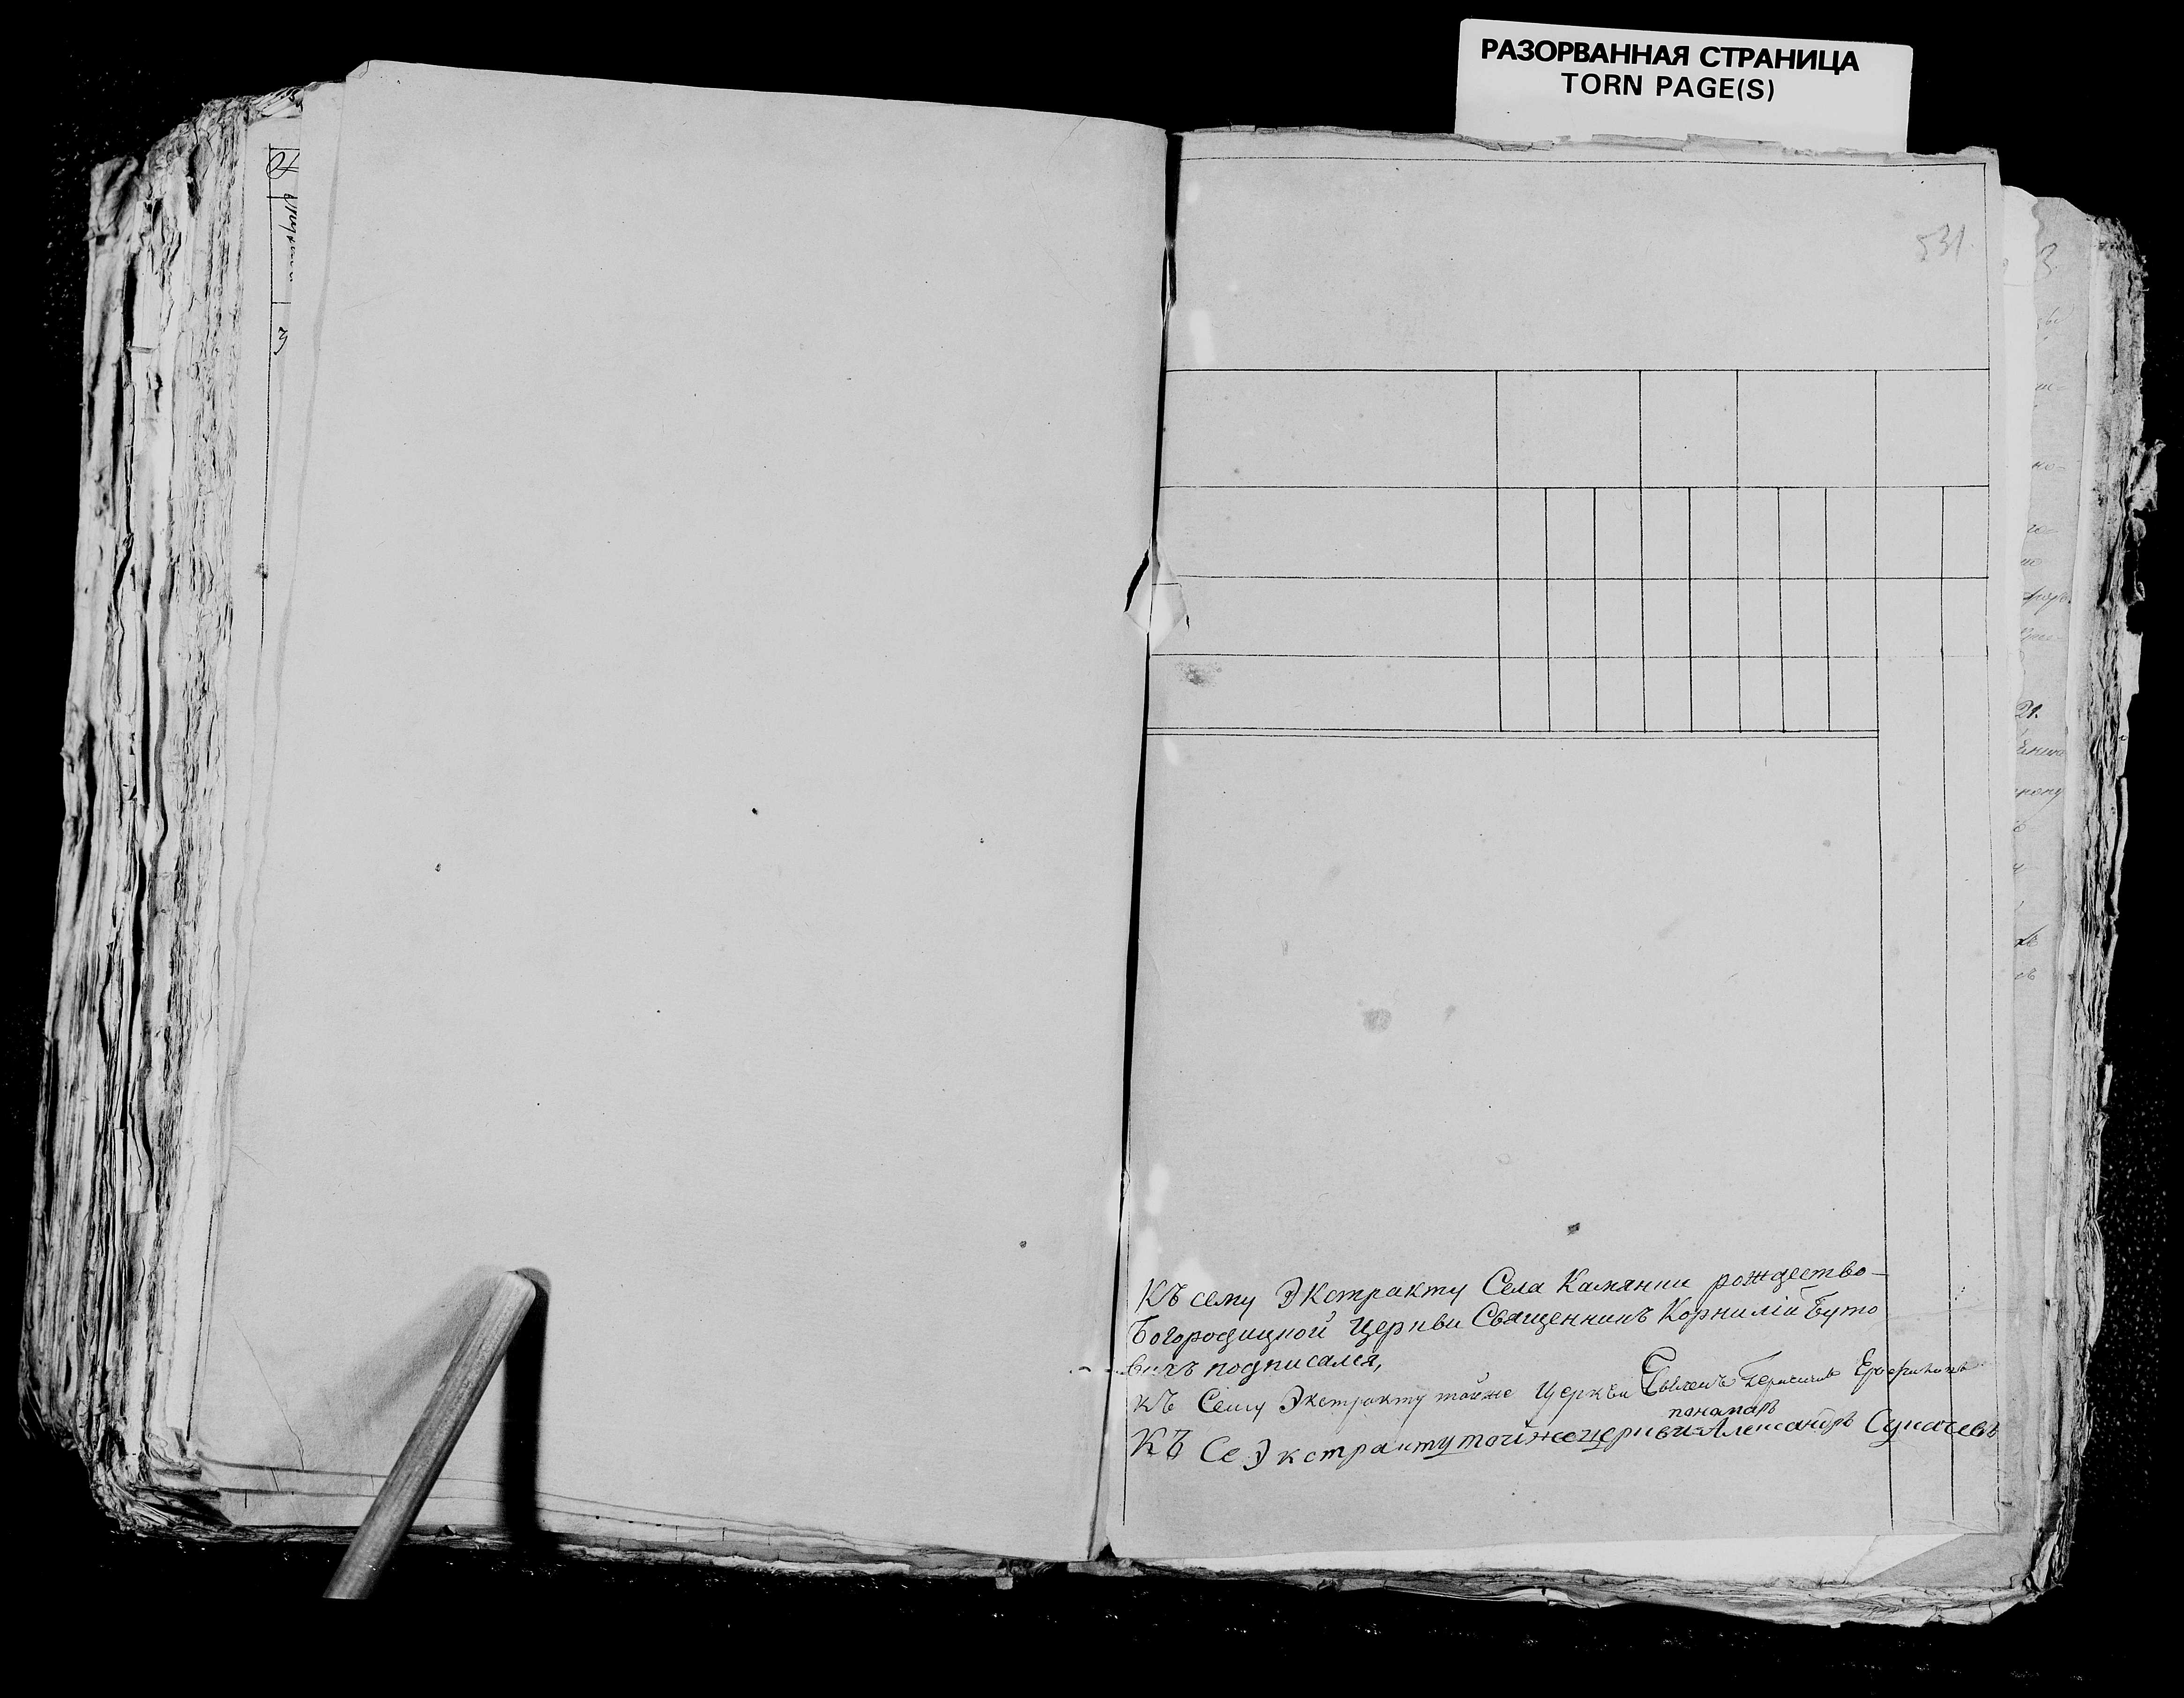 РАЗОРВАННАЯ СТРАНИЦА
TORN PAGE(S)
531
Къ сему Экстракту Села Камянки рождество-
Богородицкой Церкви Священникъ Корнилій Буто
вичъ подписался,
къ Сему Экстракту тойже Церкви
понамарь
КЪ Се Экстракту тойже церкви Александръ Сукачевъ
21.